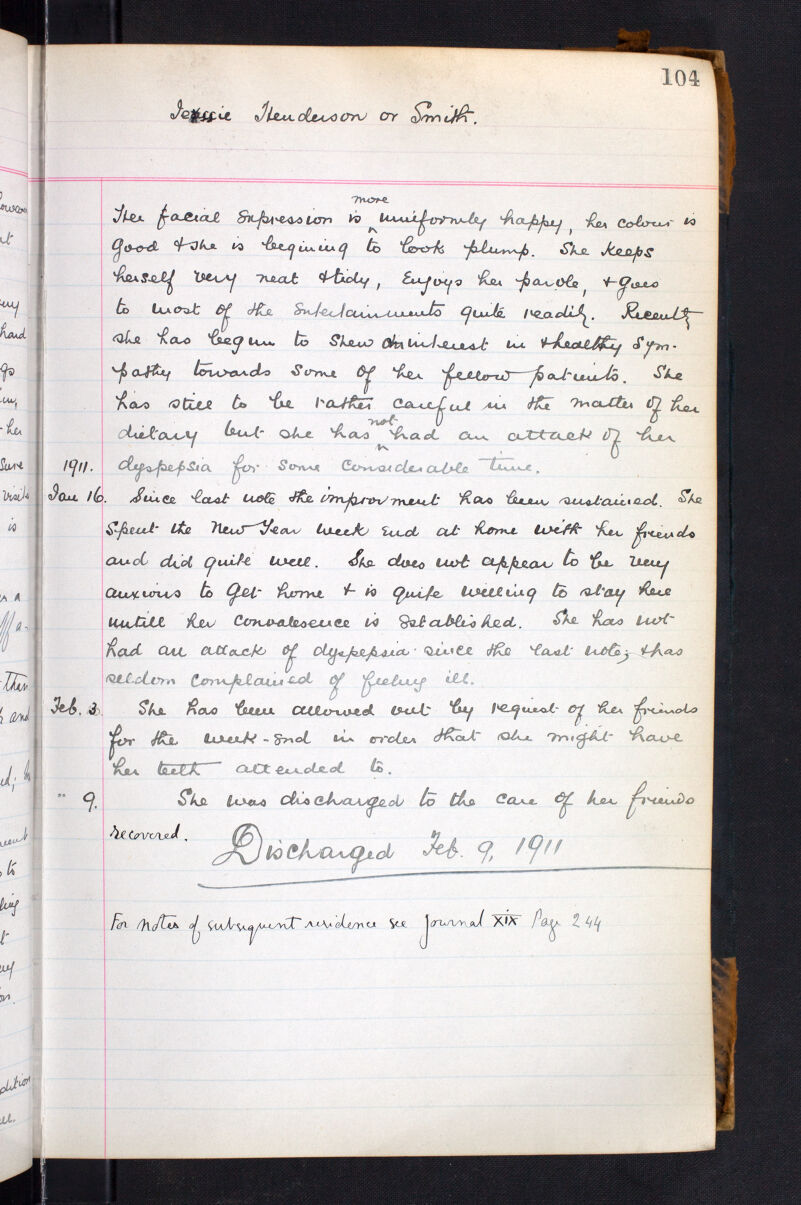 104
Jessie Henderson or Smith.
more
Her facial expression is uniformly happy, her colour is
good & she is begining to look plump. She keeps
herself very neat & tidy, Enjoys her parole, & goes
to most of the Entertainments quite readily. Recently
she has begun to shew an interest in & healthy sym-
pathy towards some of her fellow patients. She
has still to be rather careful in the matter of her
not
dietary but she has had an attack of her
1911. dyspepsia for some considerable time.
Jan 16. Since last note the improvment has been sustained. She
spent the New Year week end at home with her friends
and did quite well. She does not appear to be very
anxious to get home & is quite willing to stay here
untill her convalesence is established. She has not
had an attack of dyspepsia since the last note; & has
seldom complained of feeling ill.
Feb. 3. She has been allowed out by request of her friends
for the week-end in order that she might have
her teeth attended to.
" 9. She was discharged to the care of her friends
recovered.
Discharged Feb. 9, 1911
For notes of subsequent residence see Journal XIX Page 244